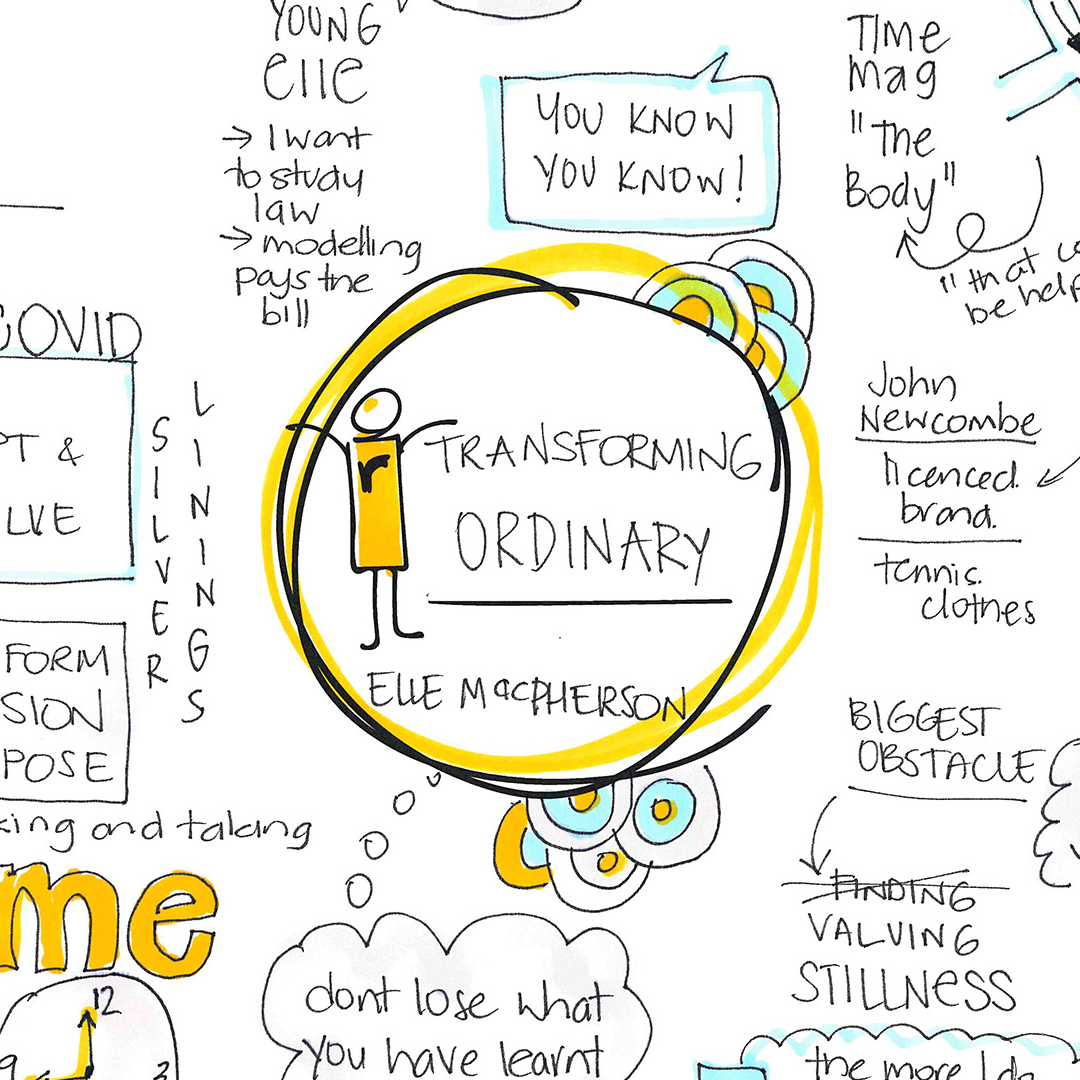 YOUNG
elle
→ I want
to study
law
→ modelling
pays the
bill
YOU KNOW
YOU KNOW!
TIME
mag
"the
Body"
"that
be
John
Newcombe
licenced
brand.
tennis.
clothes
COVID
PT &
LVE
SILVER
LININGS
r
TRANSFORMING
ORDINARY
ELLE MACPHERSON
FORM
SION
POSE
king and taking
me
12
9
3
BIGGEST
OBSTACLE
FINDING
VALUING
STILLNESS
dont lose what
you have learnt
the more I do